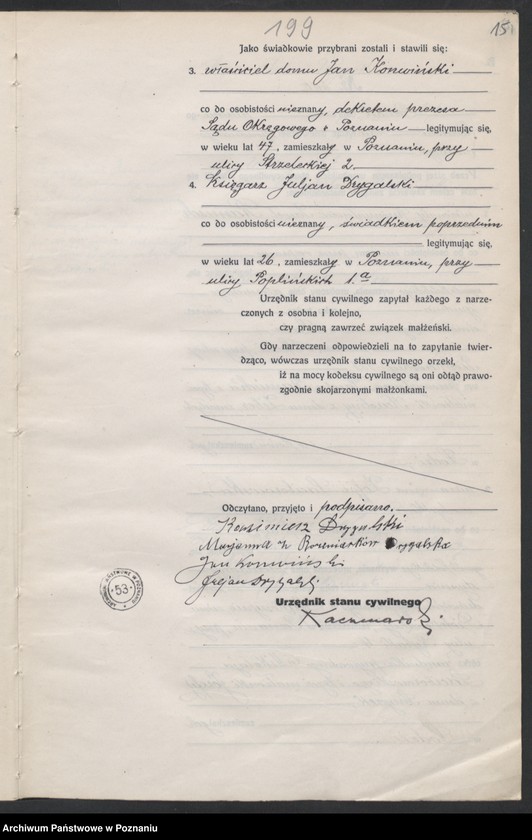 199
15
Jako świadkowie przybrani zostali i stawili się:
3. właściciel domu Jan Konwiński
co do osobistości nieznany, dekretem prezesa
Sądu Okręgowego w Poznaniu legitymując się,
w wieku lat 47, zamieszkały w Poznaniu, przy
ulicy Strzeleckiej 2.
4. Księgarz Juljan Drygalski
co do osobistości nieznany, świadkiem poprzednim
legitymując się,
w wieku lat 26, zamieszkały w Poznaniu, przy
ulicy Poplińskich 1.a
Urzędnik stanu cywilnego zapytał każdego z narze-
czonych z osobna i kolejno,
czy pragną zawrzeć związek małżeński.
Gdy narzeczeni odpowiedzieli na to zapytanie twier-
dząco, wówczas urzędnik stanu cywilnego orzekł,
iż na mocy kodeksu cywilnego są oni odtąd prawo-
zgodnie skojarzonymi małżonkami.
Odczytano, przyjęto i podpisano.
Kazimierz Drygalski
Marjanna z Rozmiarków Drygalska
Jan Konwiński
Drygalski
Urzędnik stanu cywilnego
53
Archiwum Państwowe w Poznaniu